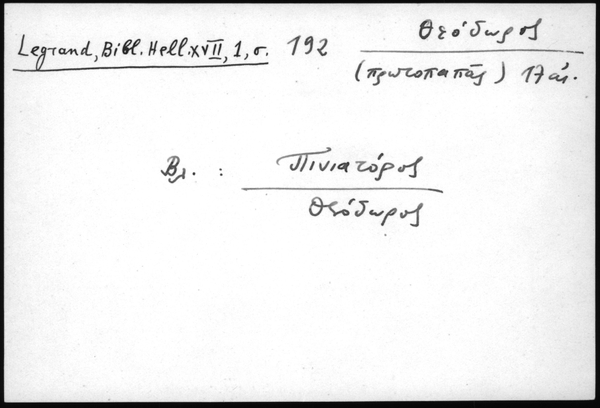 Legrand, Bibl. Hell. XVII, 1, σ. 192
Θεόδωρος
(πρωτοπαπᾶς) 17 αἰ.
Βλ. : Πινιατόρος
Θεόδωρος